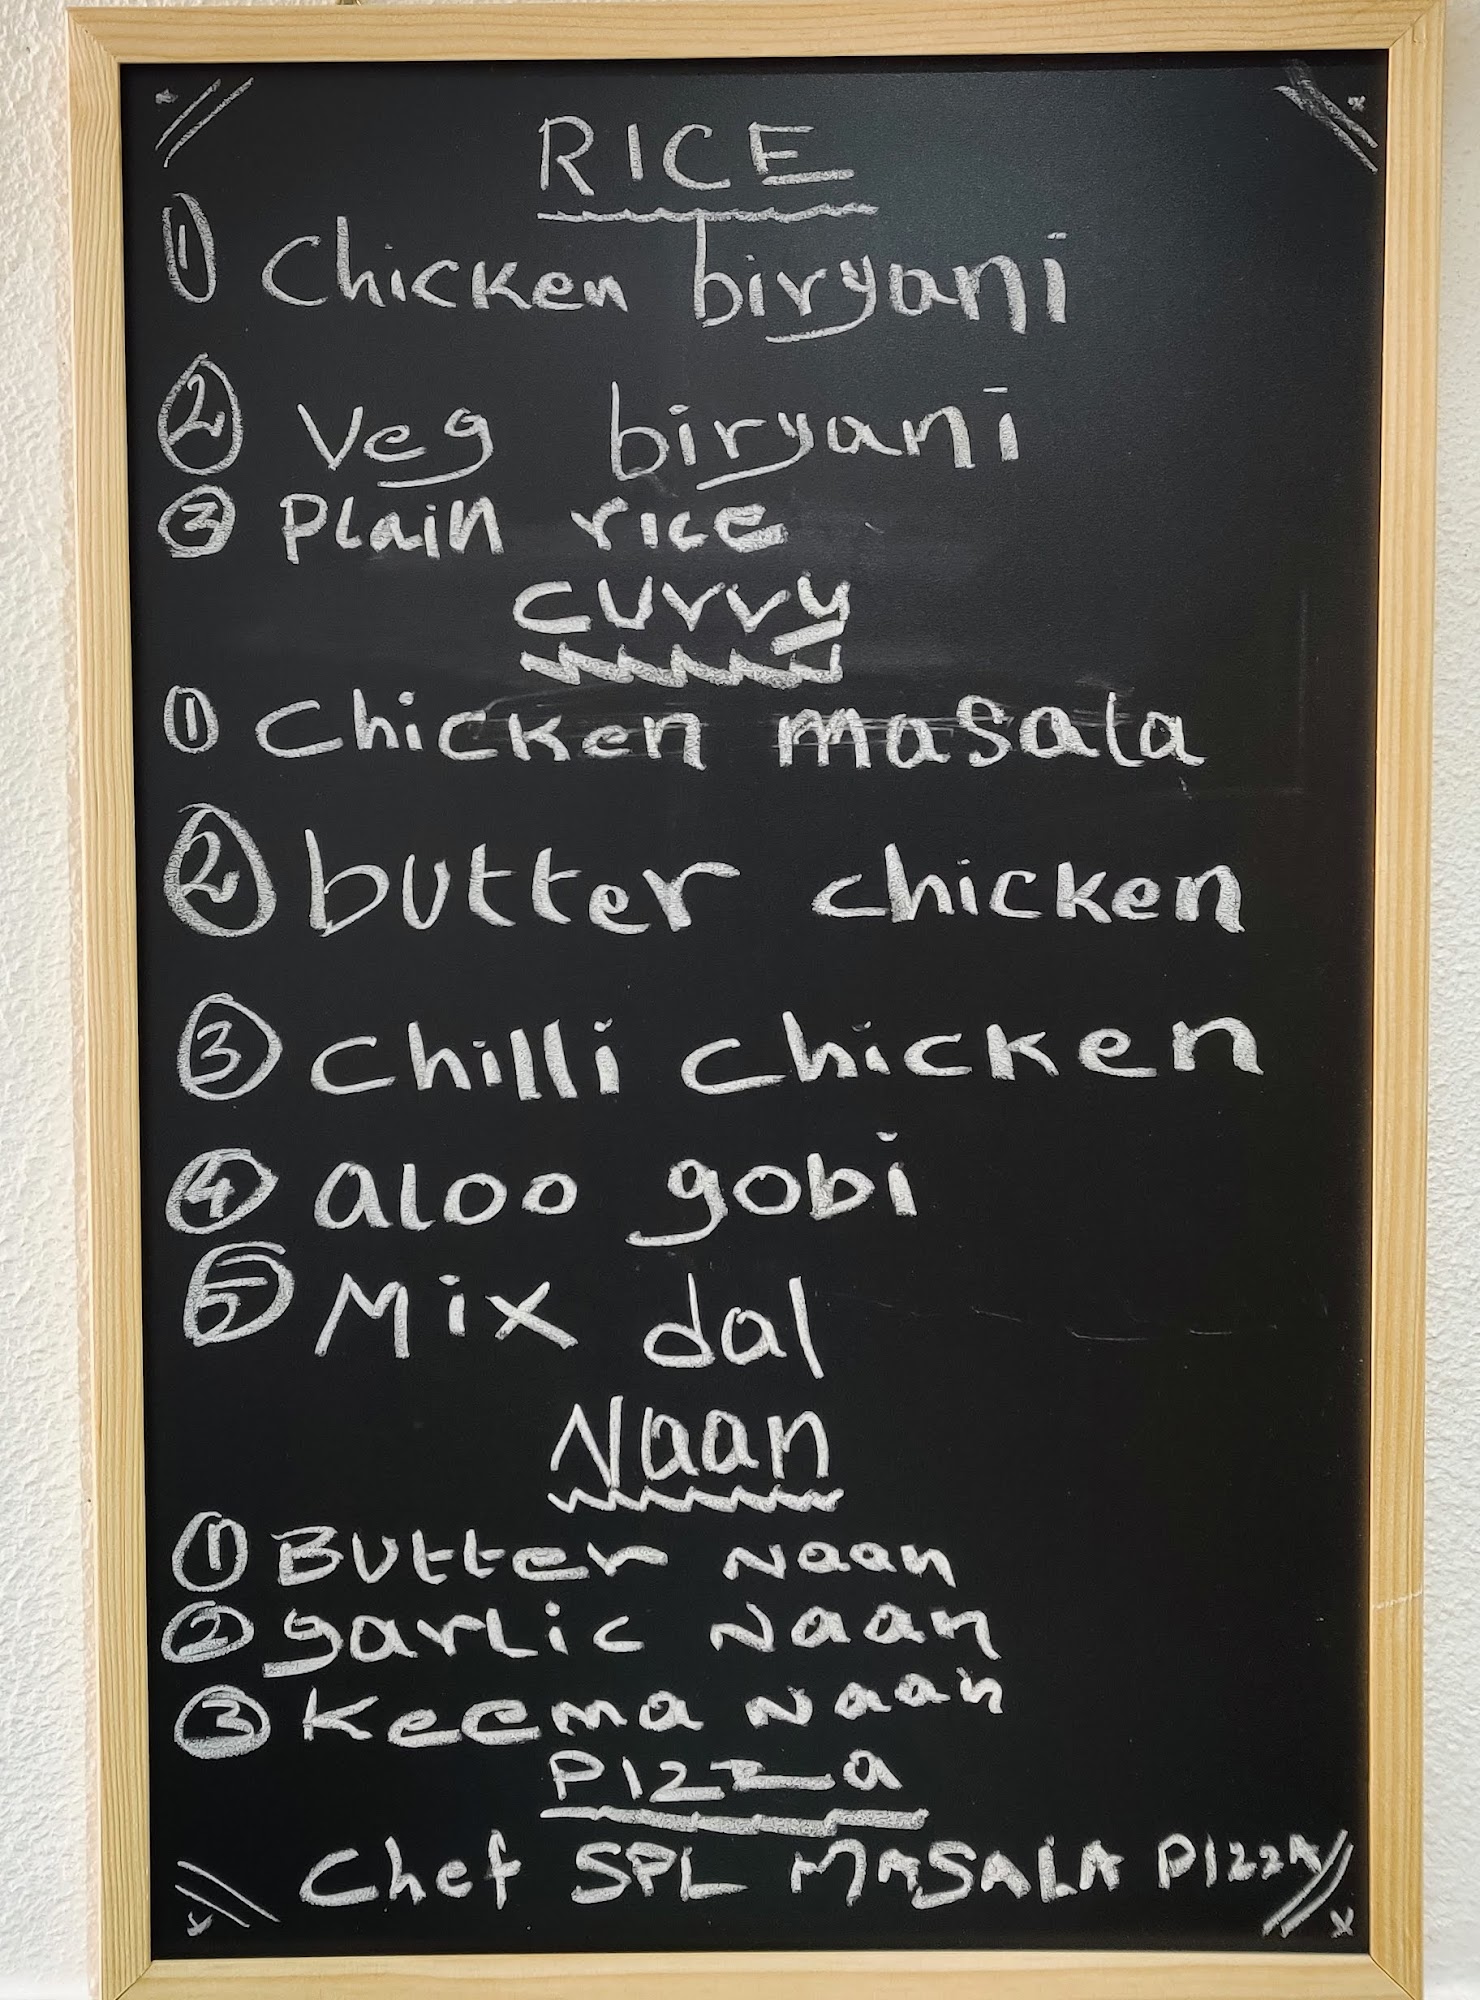 RICE
① Chicken biryani
② Veg biryani
③ Plain rice
curry
① Chicken masala
② butter chicken
③ chilli chicken
④ aloo gobi
⑤ Mix dal
Naan
① Butter Naan
② garlic Naan
③ Keema Naan
Pizza
Chef SPL MASALA PIZZA